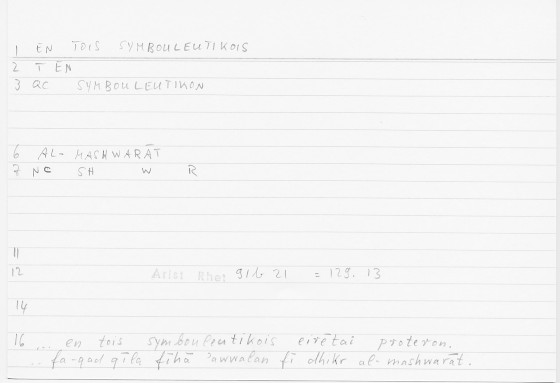 1 EN TOIS SYMBOULEUTIKOIS
2 T EN
3 QC SYMBOULEUTIKON
6 AL-MASHWARĀT
7 NC SH W R
11
12 Arist Rhet 91b 21 = 129. 13
14
16 ... en tois symbouleutikois eirētai proteron.
... fa-qad qīla fīhā 'awwalan fī dhikr al-mashwarāt.